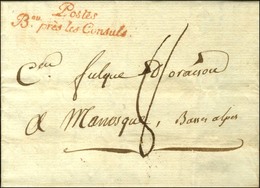 Postes
Bau. près les Consuls.
Cen fulque d'oraison
8
a Manosque, Basses alpes